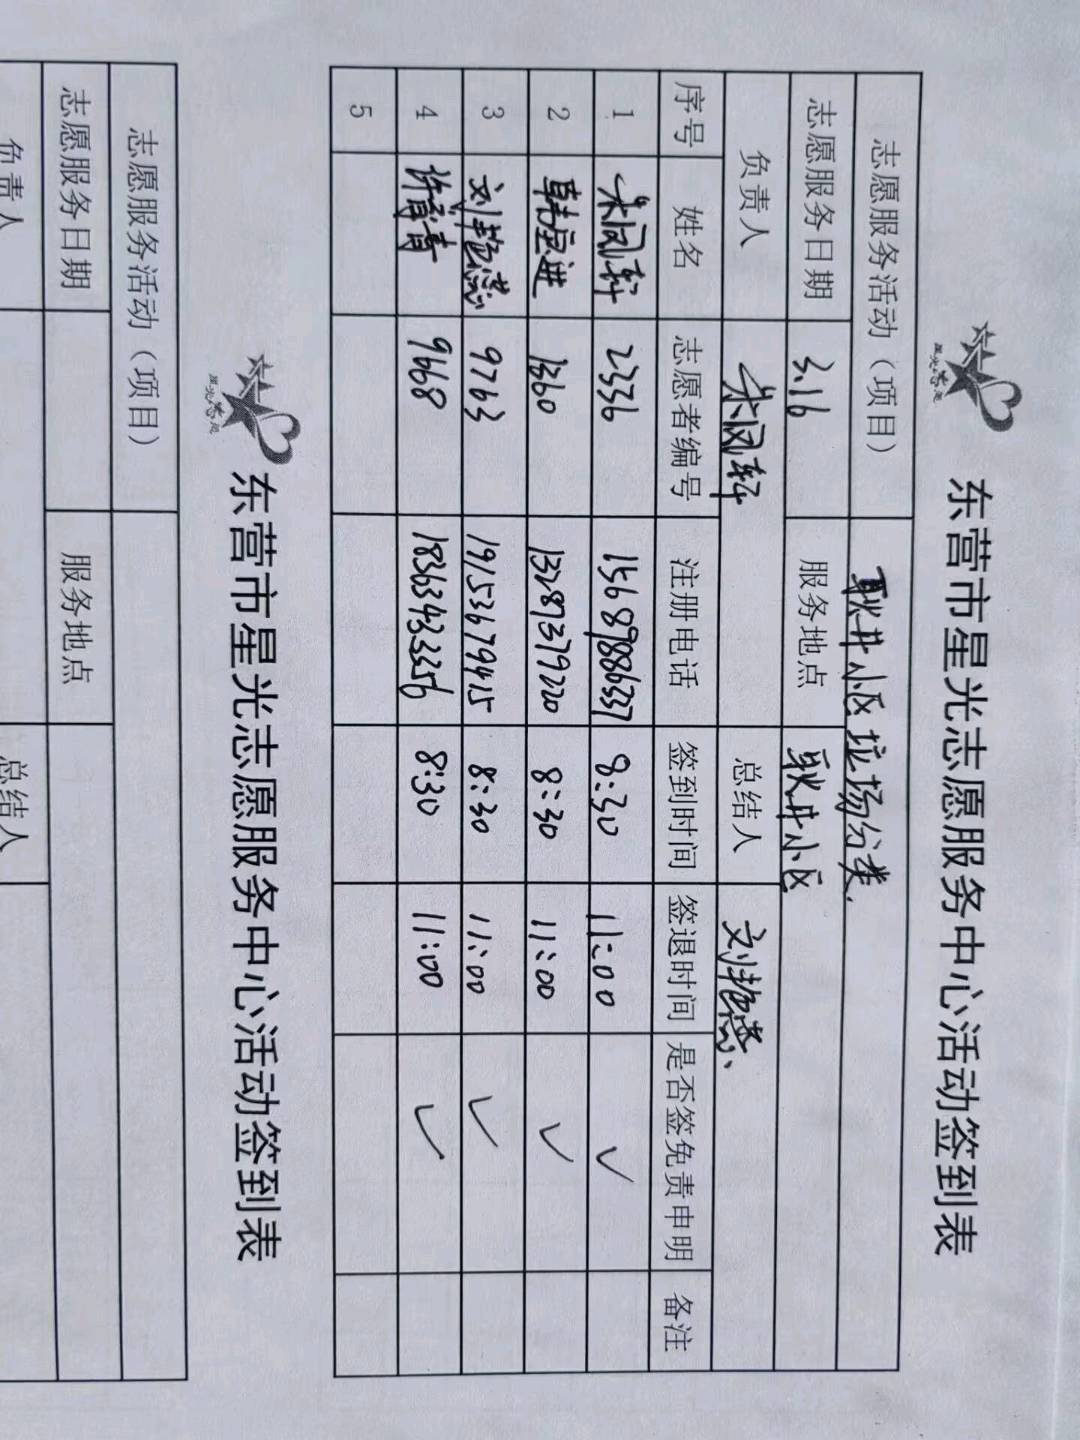 东营市星光志愿服务中心活动签到表
志愿服务活动（项目） 耿井小区垃圾分类
志愿服务日期 3.16 服务地点 耿井小区
负责人 朱凤轩 总结人 刘艳慧
序号 姓名 志愿者编号 注册电话 签到时间 签退时间 是否签免责申明 备注
1 朱凤轩 2336 15689886337 8:30 11:00 ✓
2 韩宝进 1360 13287379220 8:30 11:00 ✓
3 刘艳慧 9763 19153679415 8:30 11:00 ✓
4 许青 9668 18363433356 8:30 11:00 ✓
5
东营市星光志愿服务中心活动签到表
志愿服务活动（项目）
志愿服务日期 服务地点
负责人 总结人